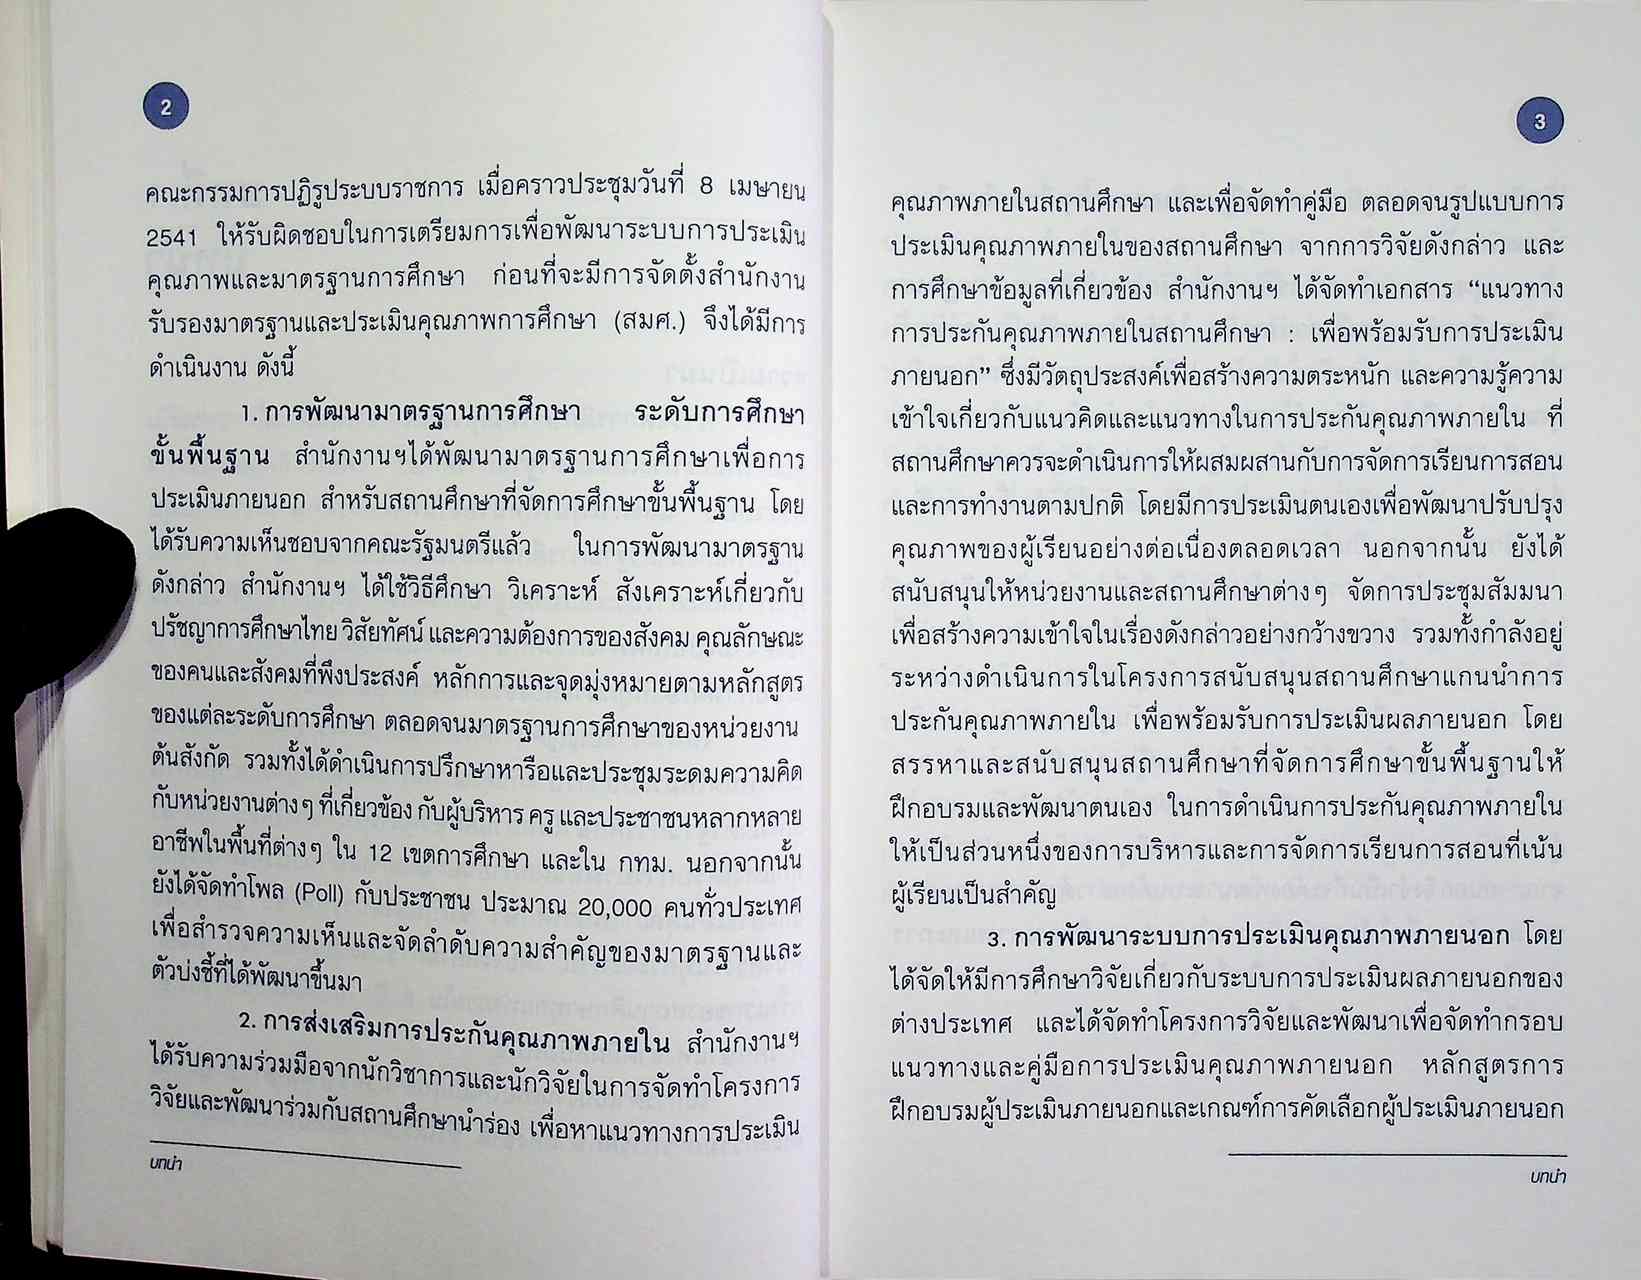 2
คณะกรรมการปฏิรูประบบราชการ เมื่อคราวประชุมวันที่ 8 เมษายน
2541 ให้รับผิดชอบในการเตรียมการเพื่อพัฒนาระบบการประเมิน
คุณภาพและมาตรฐานการศึกษา ก่อนที่จะมีการจัดตั้งสำนักงาน
รับรองมาตรฐานและประเมินคุณภาพการศึกษา (สมศ.) จึงได้มีการ
ดำเนินงาน ดังนี้
1. การพัฒนามาตรฐานการศึกษา ระดับการศึกษา
ขั้นพื้นฐาน สำนักงานฯได้พัฒนามาตรฐานการศึกษาเพื่อการ
ประเมินภายนอก สำหรับสถานศึกษาที่จัดการศึกษาขั้นพื้นฐาน โดย
ได้รับความเห็นชอบจากคณะรัฐมนตรีแล้ว ในการพัฒนามาตรฐาน
ดังกล่าว สำนักงานฯ ได้ใช้วิธีศึกษา วิเคราะห์ สังเคราะห์เกี่ยวกับ
ปรัชญาการศึกษาไทย วิสัยทัศน์ และความต้องการของสังคม คุณลักษณะ
ของคนและสังคมที่พึงประสงค์ หลักการและจุดมุ่งหมายตามหลักสูตร
ของแต่ละระดับการศึกษา ตลอดจนมาตรฐานการศึกษาของหน่วยงาน
ต้นสังกัด รวมทั้งได้ดำเนินการปรึกษาหารือและประชุมระดมความคิด
กับหน่วยงานต่างๆ ที่เกี่ยวข้อง กับผู้บริหาร ครู และประชาชนหลากหลาย
อาชีพในพื้นที่ต่างๆ ใน 12 เขตการศึกษา และใน กทม. นอกจากนั้น
ยังได้จัดทำโพล (Poll) กับประชาชน ประมาณ 20,000 คนทั่วประเทศ
เพื่อสำรวจความเห็นและจัดลำดับความสำคัญของมาตรฐานและ
ตัวบ่งชี้ที่ได้พัฒนาขึ้นมา
2. การส่งเสริมการประกันคุณภาพภายใน สำนักงานฯ
ได้รับความร่วมมือจากนักวิชาการและนักวิจัยในการจัดทำโครงการ
วิจัยและพัฒนาร่วมกับสถานศึกษานำร่อง เพื่อหาแนวทางการประเมิน
บทนำ
3
คุณภาพภายในสถานศึกษา และเพื่อจัดทำคู่มือ ตลอดจนรูปแบบการ
ประเมินคุณภาพภายในของสถานศึกษา จากการวิจัยดังกล่าว และ
การศึกษาข้อมูลที่เกี่ยวข้อง สำนักงานฯ ได้จัดทำเอกสาร “แนวทาง
การประกันคุณภาพภายในสถานศึกษา : เพื่อพร้อมรับการประเมิน
ภายนอก” ซึ่งมีวัตถุประสงค์เพื่อสร้างความตระหนัก และความรู้ความ
เข้าใจเกี่ยวกับแนวคิดและแนวทางในการประกันคุณภาพภายใน ที่
สถานศึกษาควรจะดำเนินการให้ผสมผสานกับการจัดการเรียนการสอน
และการทำงานตามปกติ โดยมีการประเมินตนเองเพื่อพัฒนาปรับปรุง
คุณภาพของผู้เรียนอย่างต่อเนื่องตลอดเวลา นอกจากนั้น ยังได้
สนับสนุนให้หน่วยงานและสถานศึกษาต่างๆ จัดการประชุมสัมมนา
เพื่อสร้างความเข้าใจในเรื่องดังกล่าวอย่างกว้างขวาง รวมทั้งกำลังอยู่
ระหว่างดำเนินการในโครงการสนับสนุนสถานศึกษาแกนนำการ
ประกันคุณภาพภายใน เพื่อพร้อมรับการประเมินผลภายนอก โดย
สรรหาและสนับสนุนสถานศึกษาที่จัดการศึกษาขั้นพื้นฐานให้
ฝึกอบรมและพัฒนาตนเอง ในการดำเนินการประกันคุณภาพภายใน
ให้เป็นส่วนหนึ่งของการบริหารและการจัดการเรียนการสอนที่เน้น
ผู้เรียนเป็นสำคัญ
3. การพัฒนาระบบการประเมินคุณภาพภายนอก โดย
ได้จัดให้มีการศึกษาวิจัยเกี่ยวกับระบบการประเมินผลภายนอกของ
ต่างประเทศ และได้จัดทำโครงการวิจัยและพัฒนาเพื่อจัดทำกรอบ
แนวทางและคู่มือการประเมินคุณภาพภายนอก หลักสูตรการ
ฝึกอบรมผู้ประเมินภายนอกและเกณฑ์การคัดเลือกผู้ประเมินภายนอก
บทนำ